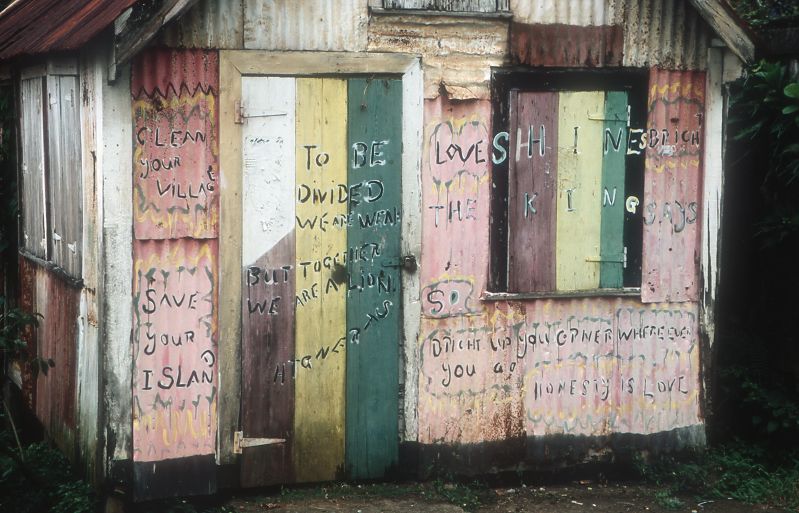 CLEAN
YOUR
VILLAGE
SAVE
YOUR
ISLAND
TO BE
DIVIDED
WE ARE WEAK
BUT TOGETHER
WE ARE A LION.
LOVE SHINES BRIGHT
THE KING SAYS
SO
BRIGHT UP YOU CORNER WHEREEVER
YOU GO
HONESTY IS LOVE